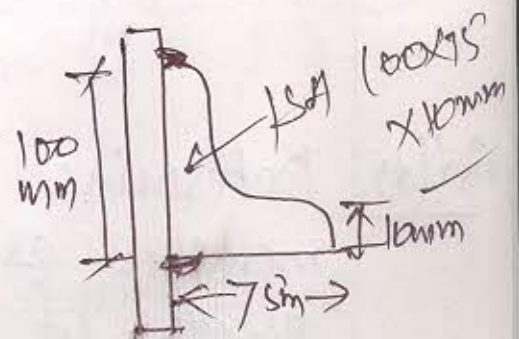 100
mm
ISA 100x75
x10mm
10mm
75m